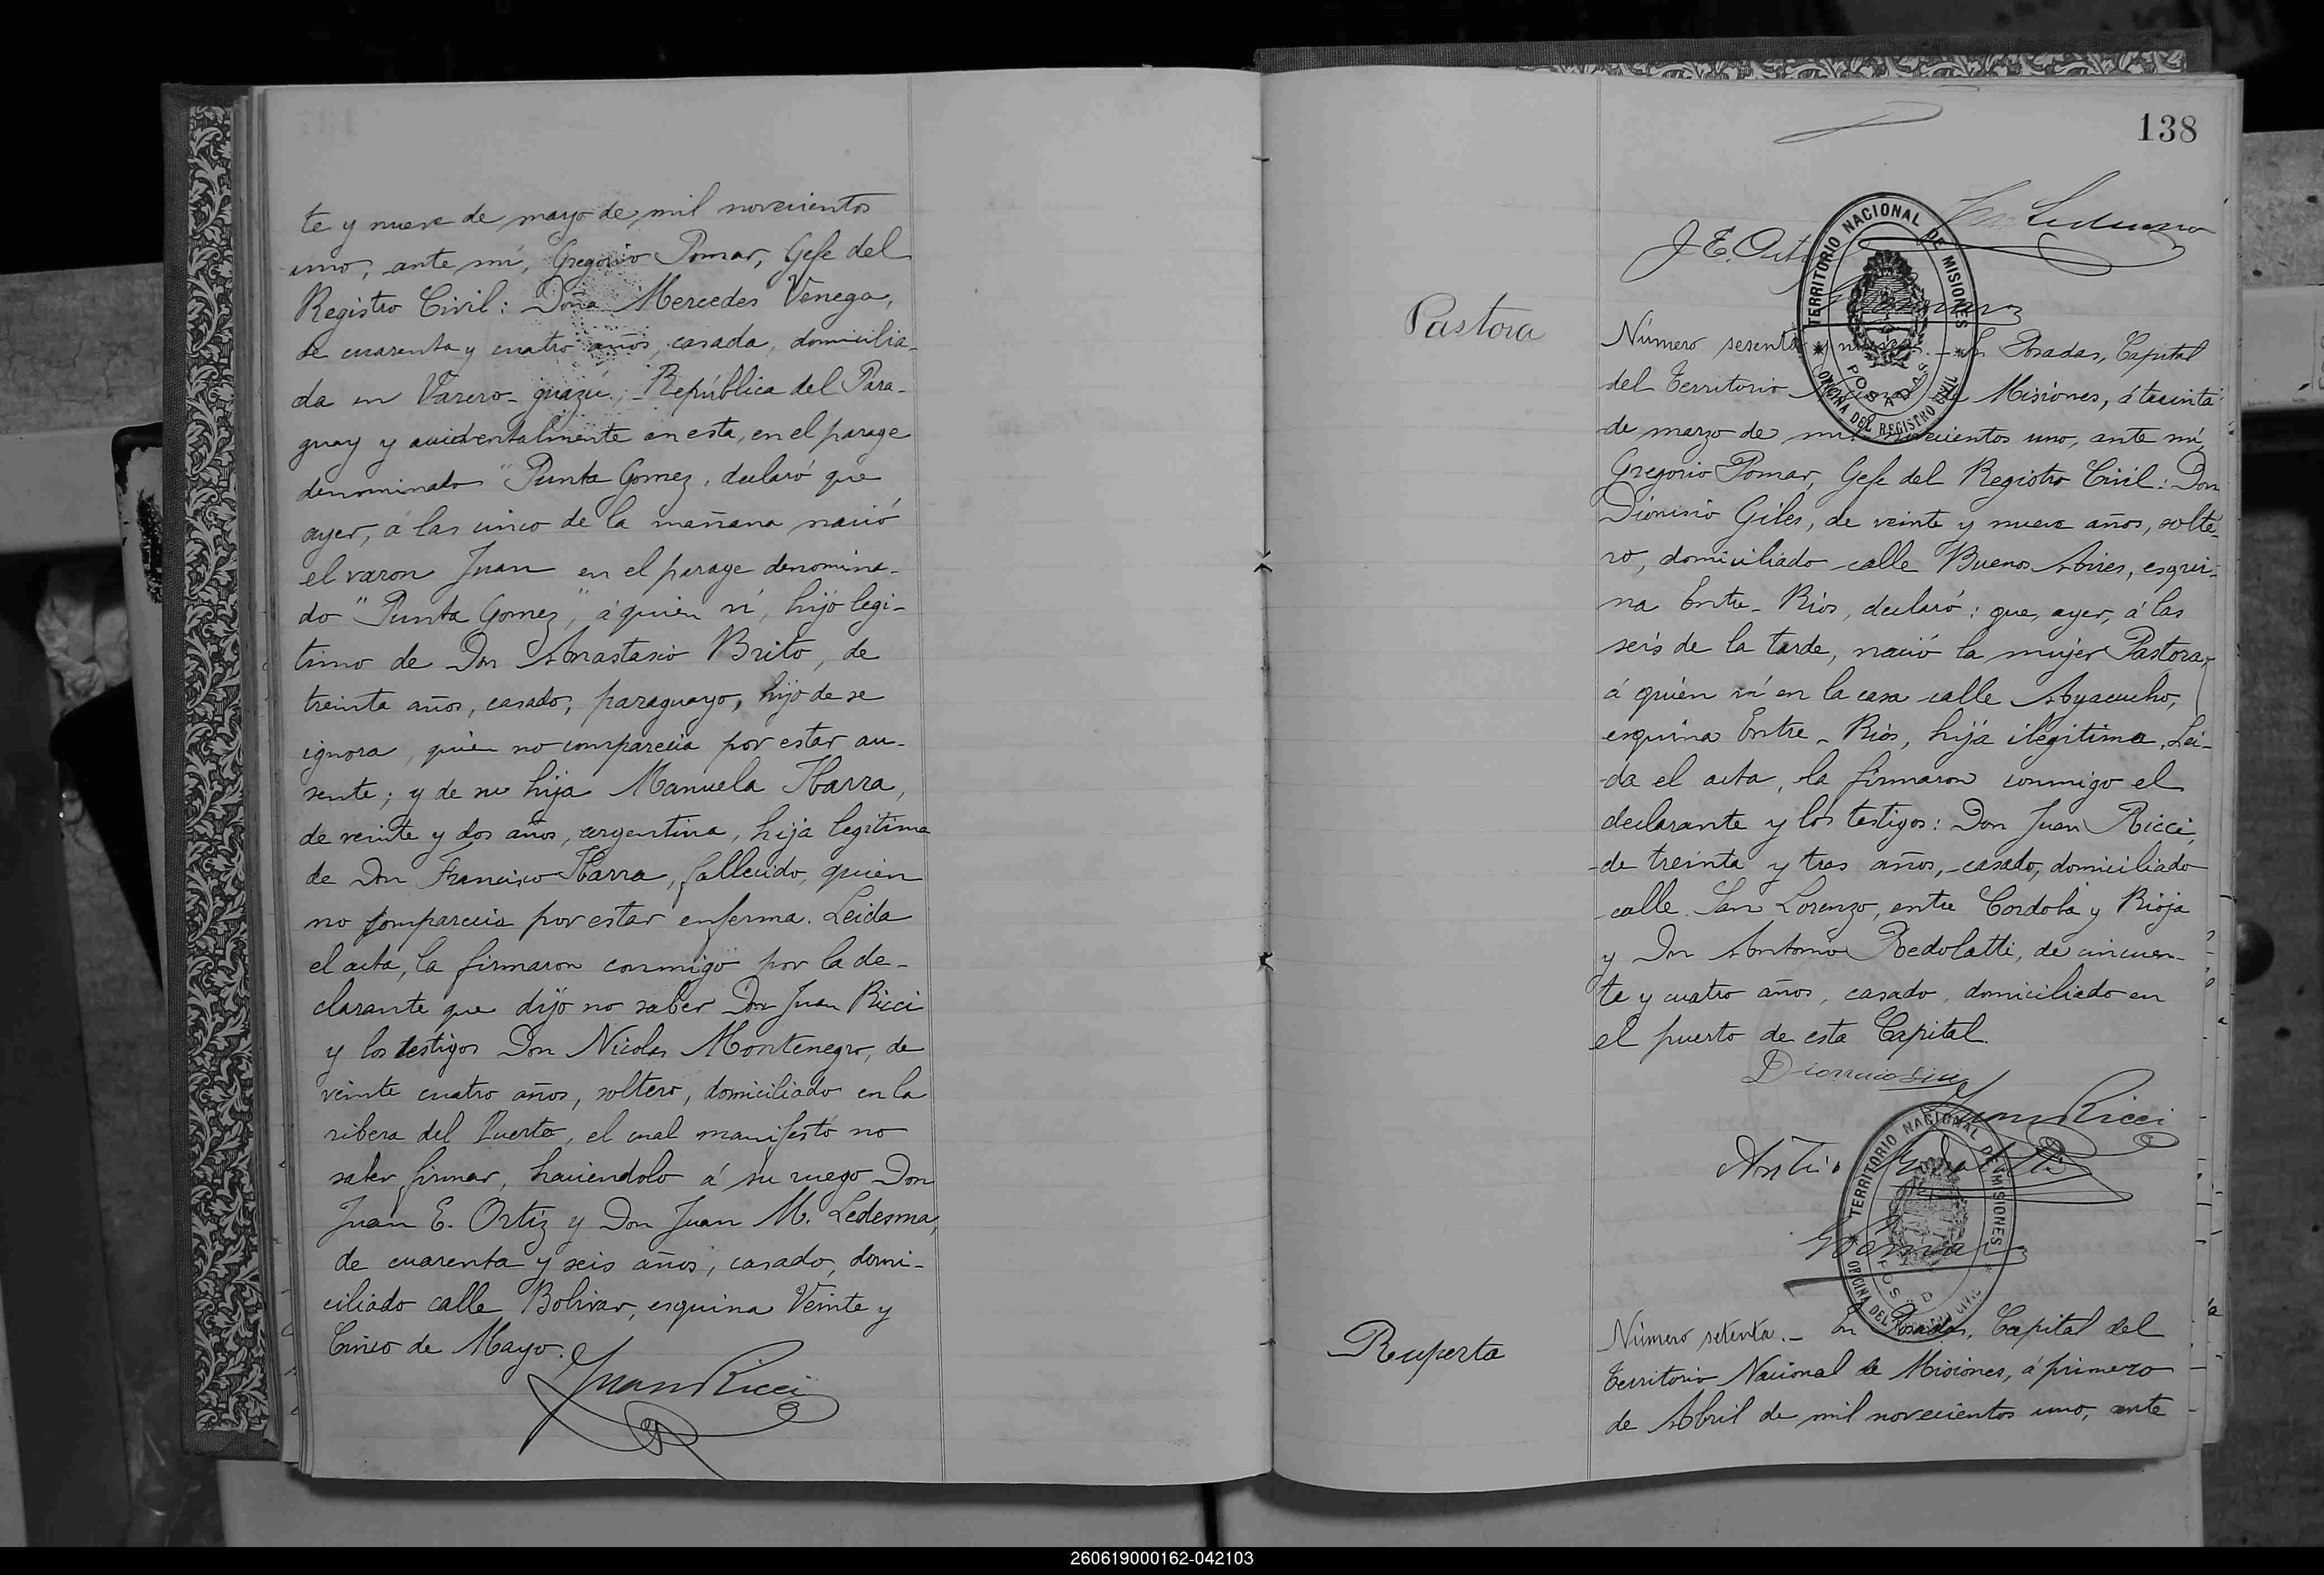 te y nueve de mayo de mil novecientos
uno, ante mí, Gregorio Pomar, Gefe del
Registro Civil: Doña Mercedes Venega,
de cuarenta y cuatro años, casada, domicilia-
da en Varero-guazú, República del Para-
guay y accidentalmente en esta, en el parage
denominado "Punta Gomez, declaró que
ayer, á las cinco de la mañana nació
el varon Juan en el parage denomina-
do "Punta Gomez," á quien ví, hijo legi-
timo de Don Anastasio Brito, de
treinta años, casado, paraguayo, hijo de se
ignora, quien no comparecia por estar au-
sente; y de su hija Manuela Ibarra,
de veinte y dos años, argentina, hija legitima
de Don Francisco Ibarra, fallecido, quien
no comparecia por estar enferma. Leida
el acta, la firmaron conmigo por la de-
clarante que dijo no saber Don Juan Ricci
y los testigos Don Nicolas Montenegro, de
veinte cuatro años, soltero, domiciliado en la
ribera del Puerto, el cual manifestó no
saber firmar, haciendolo á su ruego Don
Juan E. Ortiz y Don Juan M. Ledesma,
de cuarenta y seis años, casado, domi-
ciliado calle Bolivar, esquina Veinte y
Cinco de Mayo.
Juan Ricci
138
Ledesma
J. E. Ortiz
TERRITORIO NACIONAL DE MISIONES
POSADAS
OFICINA DEL REGISTRO CIVIL
Pastora
Número sesenta y nueve.- En Posadas, Capital
del Territorio Nacional de Misiones, á treinta
de marzo de mil novecientos uno, ante mí,
Gregorio Pomar, Gefe del Registro Civil: Don
Dionisio Giles, de veinte y nueve años, solte-
ro, domiciliado calle Buenos Aires, esqui-
na Entre-Rios, declaró: que, ayer, á las
seis de la tarde, nació la mujer Pastora,
á quien ví en la casa calle Ayacucho,
esquina Entre-Rios, hija ilegitima. Lei-
da el acta, la firmaron conmigo el
declarante y los testigos: Don Juan Ricci,
de treinta y tres años, casado, domiciliado
calle San Lorenzo, entre Cordoba y Rioja
y Don Antonio Redolatti, de cincuen-
ta y cuatro años, casado, domiciliado en
el puerto de esta Capital.
Juan Ricci
TERRITORIO NACIONAL DE MISIONES
OFICINA DEL REGISTRO CIVIL
GPomar
Ruperta
Número setenta.- En Posadas, Capital del
Territorio Nacional de Misiones, á primero
de Abril de mil novecientos uno, ante
260619000162-042103